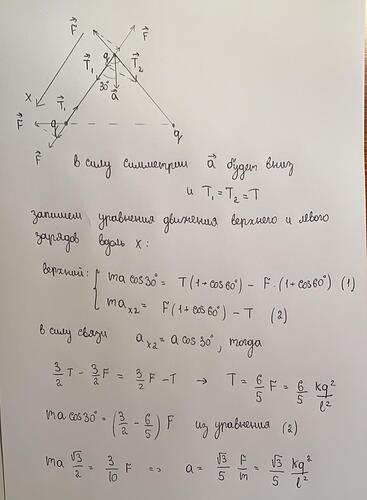 F⃗
F⃗
q
T⃗₁
T⃗₂
30°
a⃗
x
T⃗₁
F⃗
q
q
F⃗
в силу симметрии a⃗ будет вниз
и T₁ = T₂ = T
запишем уравнения движения верхнего и левого
зарядов вдоль x:
верхний: { ma cos30° = T(1+cos60°) - F·(1+cos60°) (1)
ma_x2 = F(1+cos60°) - T (2)
в силу связи a_x2 = a cos30°, тогда
3/2 T - 3/2 F = 3/2 F - T → T = 6/5 F = 6/5 kq²/l²
ma cos30° = (3/2 - 6/5) F из уравнения (2)
ma √3/2 = 3/10 F => a = √3/5 F/m = √3/5 kq²/l²